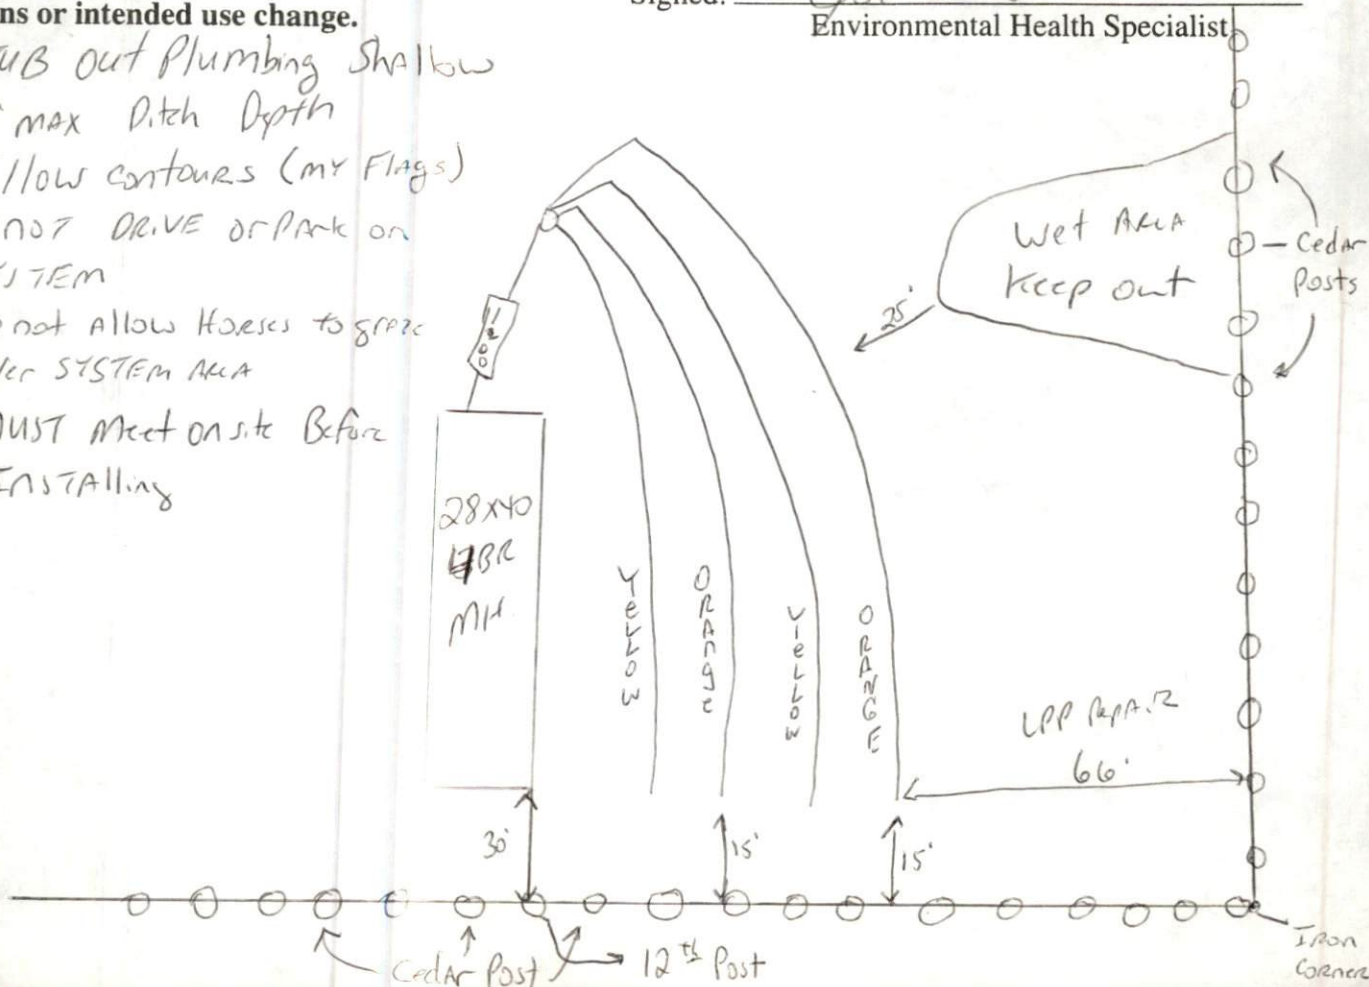 ns or intended use change.
Signed:
Environmental Health Specialist
UB out Plumbing Shallow
max Ditch Depth
llow contours (my Flags)
not DRIVE or Park on
STEM
not Allow Horses to graze
er SYSTEM AreA
UST Meet on site Before
INSTAlling
Wet AreA
Keep out
Cedar
Posts
25'
28x40
BR
MH
YeLLOW
ORAnge
YieLLOW
ORANGE
LPP RepAiR
66'
30'
15'
15'
Cedar Post
12th Post
Iron
Corner